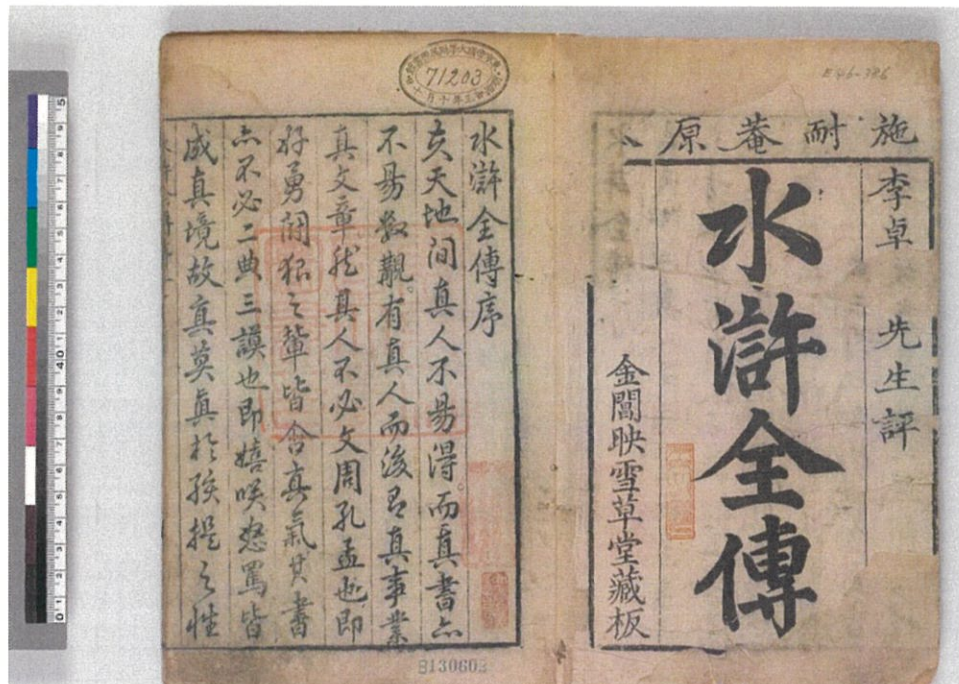 施耐菴原本
李卓 先生評
水滸全傳
金閶映雪草堂藏板
水滸全傳序
夫天地間真人不易得而真書亦
不易數覯有真人而後有真事業
真文章然其人不必文周孔孟也即
好勇鬪狠之輩皆含真氣其書
亦不必二典三謨也即嬉咲怒罵皆
成真境故真莫真於孩提之性
71203
E46-786
8130603